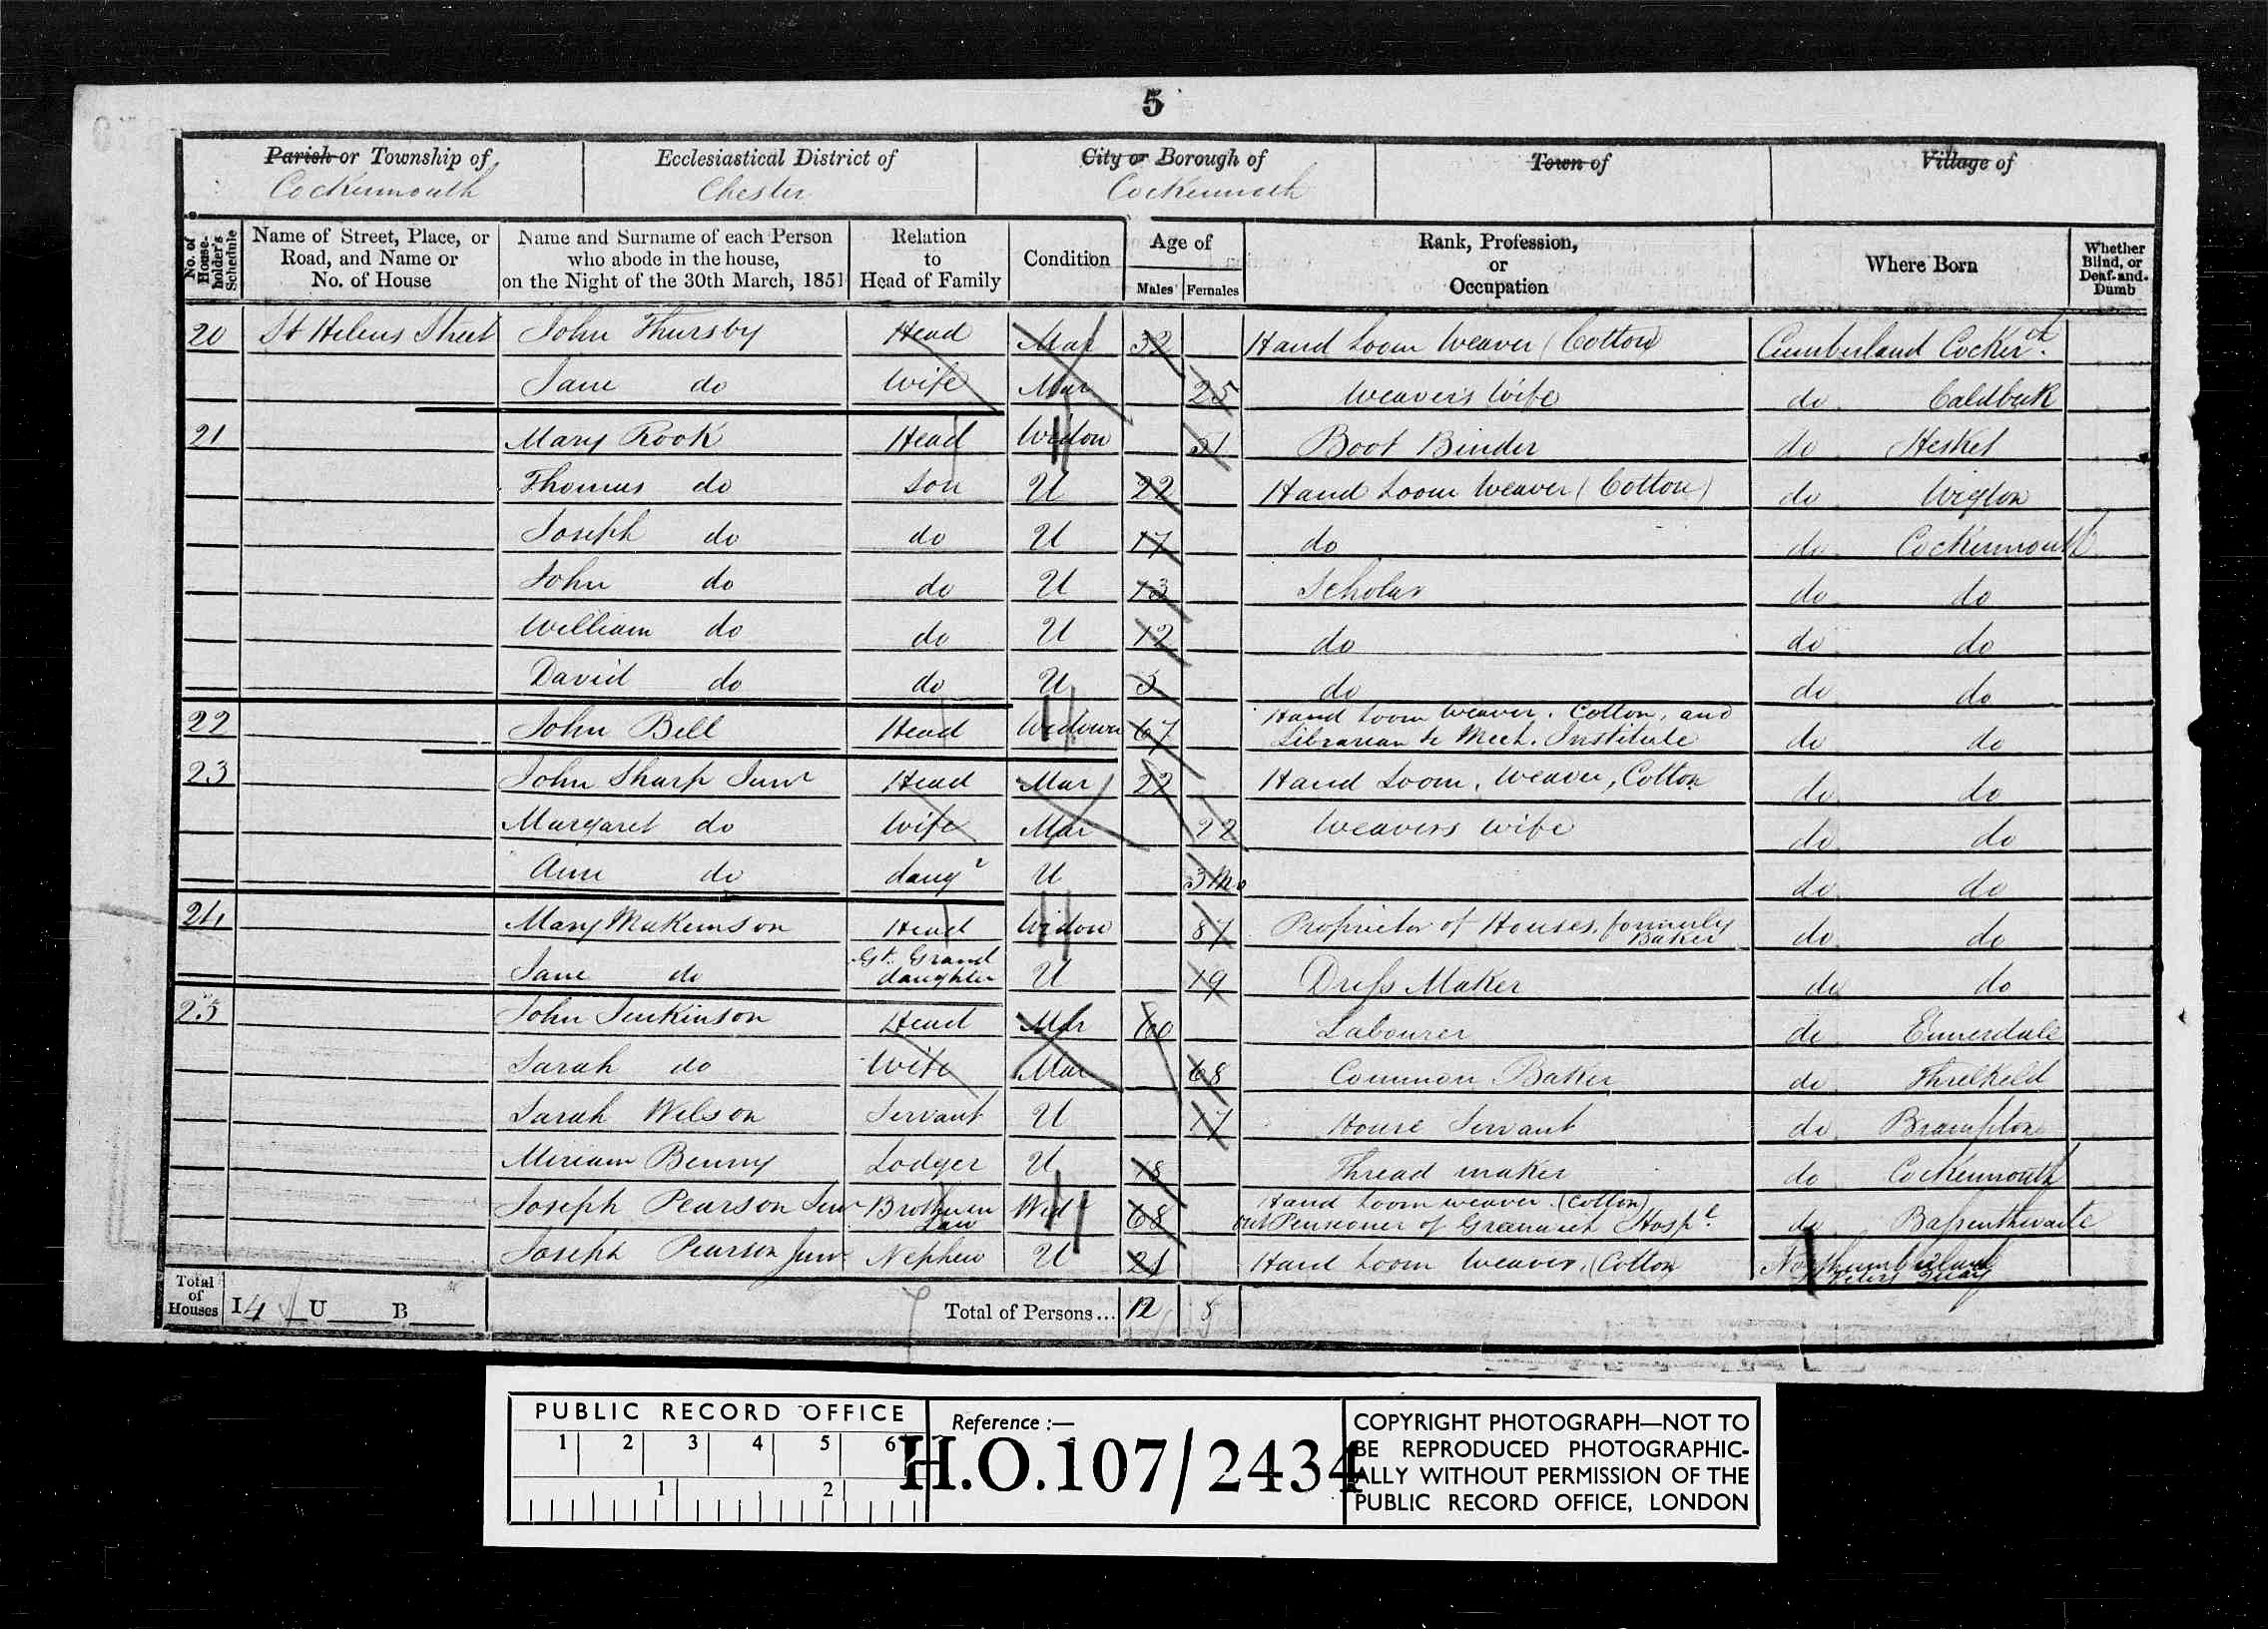 5
Parish or Township of Ecclesiastical District of City or Borough of Town of Village of
Cockermouth Chester Cockermouth
No. of House-holder's Schedule Name of Street, Place, or Road, and Name or No. of House Name and Surname of each Person who abode in the house, on the Night of the 30th March, 1851 Relation to Head of Family Condition Age of Males Females Rank, Profession, or Occupation Where Born Whether Blind, or Deaf-and-Dumb
20 St Helens Street John Thursby Head Mar 32 Hand Loom Weaver (Cotton) Cumberland Cockerth.
Jane do Wife Mar 25 Weavers Wife do Caldbeck
21 Mary Rook Head Widow 51 Boot Binder do Hesket
Thomas do Son U 22 Hand Loom Weaver (Cotton) do Wigton
Joseph do do U 17 do do Cockermouth
John do do U 13 Scholar do do
William do do U 12 do do do
David do do U 5 do do do
22 John Bell Head Widower 67 Hand Loom Weaver. Cotton, and Librarian to Mech. Institute do do
23 John Sharp Junr Head Mar 22 Hand Loom, Weaver, Cotton do do
Margaret do Wife Mar 22 Weavers wife do do
Ann do daugr U 3 Mo do do
24 Mary Makinson Head Widow 87 Proprietor of Houses, formerly Baker do do
Jane do Gt. Grand daughter U 19 Dress Maker do do
25 John Jenkinson Head Mar 60 Labourer do Ennerdale
Sarah do Wife Mar 68 Common Baker do Threlkeld
Sarah Wilson Servant U 17 House Servant do Brampton
Miriam Benny Lodger U 18 Thread maker do Cockermouth
Joseph Pearson Senr Brother in Law Widr 68 Hand Loom weaver (Cotton) out Pensioner of Greenwich Hospl. do Bassenthwaite
Joseph Pearson Junr Nephew U 21 Hand Loom Weaver, (Cotton) Northumberland Peters Quay
Total of Houses I 4 U B Total of Persons... 12 8
PUBLIC RECORD OFFICE
1 2 3 4 5 6
1 2
Reference :—
H.O.107/2434
COPYRIGHT PHOTOGRAPH—NOT TO
BE REPRODUCED PHOTOGRAPHIC-
ALLY WITHOUT PERMISSION OF THE
PUBLIC RECORD OFFICE, LONDON